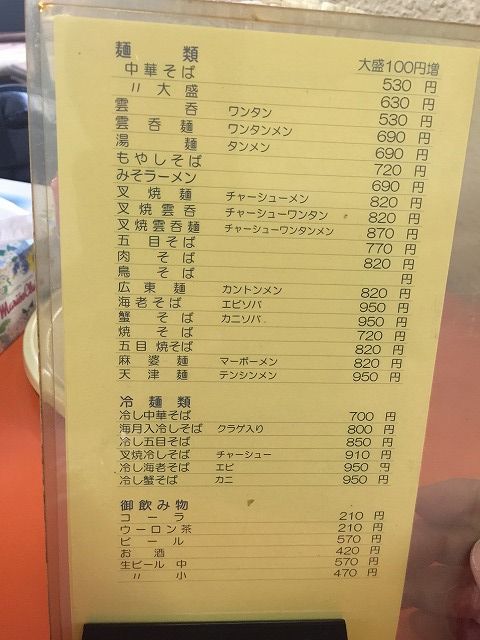 麺類 大盛100円増
中華そば 530 円
〃 大盛 630 円
雲呑 ワンタン 530 円
雲呑麺 ワンタンメン 690 円
湯麺 タンメン 690 円
もやしそば 720 円
みそラーメン 690 円
叉焼麺 チャーシューメン 820 円
叉焼雲呑 チャーシューワンタン 820 円
叉焼雲呑麺 チャーシューワンタンメン 870 円
五目そば 770 円
肉そば 820 円
鳥そば 円
広東麺 カントンメン 820 円
海老そば エビソバ 950 円
蟹そば カニソバ 950 円
焼そば 720 円
五目焼そば 820 円
麻婆麺 マーボーメン 820 円
天津麺 テンシンメン 950 円
冷麺類
冷し中華そば 700 円
海月入冷しそば クラゲ入り 800 円
冷し五目そば 850 円
叉焼冷しそば チャーシュー 910 円
冷し海老そば エビ 950 円
冷し蟹そば カニ 950 円
御飲み物
コーラ 210 円
ウーロン茶 210 円
ビール 570 円
お酒 420 円
生ビール 中 570 円
〃 小 470 円